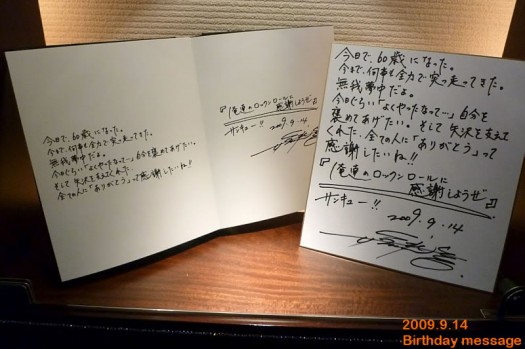 今日で、60歳になった。
今まで、何事も全力で突っ走ってきた。
無我夢中だよ。
今日ぐらい「よくやったなって…」自分を
褒めてあげたい。そして矢沢を支えて
くれた、全ての人に「ありがとう」って
感謝したいね!!
『俺達のロックンロールに
感謝しようぜ』
サンキュー!!
2009.9.14
今日で、60歳になった。
今まで、何事も全力で突っ走ってきた。
無我夢中だよ。
今日ぐらい「よくやったなって」自分を褒めてあげたい。
そして矢沢を支えてくれた、
全ての人に「ありがとう」って感謝したいね!!
『俺達のロックンロールに
感謝しようぜ』
サンキュー!! 2009.9.14
2009.9.14
Birthday message